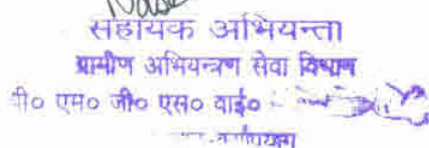 सहायक अभियन्ता
ग्रामीण अभियन्त्रण सेवा विभाग
पी० एम० जी० एस० वाई०